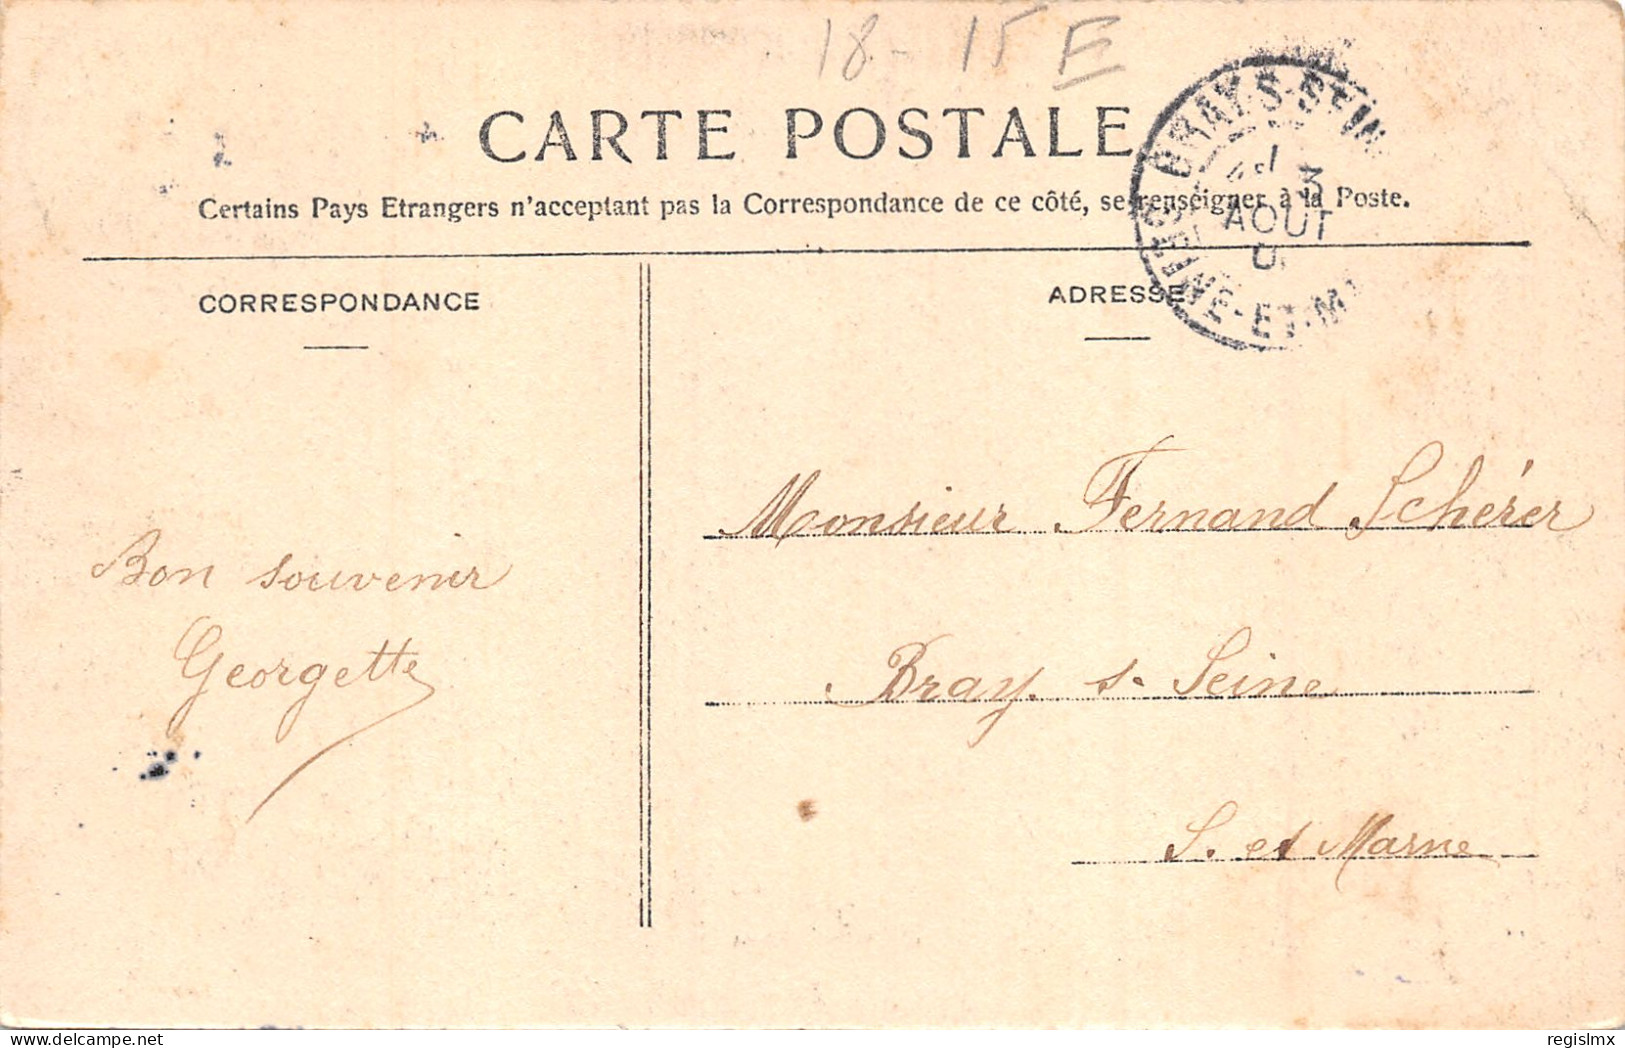 18 - 15 E
CARTE POSTALE
Certains Pays Etrangers n'acceptent pas la Correspondance de ce côté, se renseigner à la Poste.
BRAY-S-SEIN
3
AOUT
SEINE-ET-M
CORRESPONDANCE
ADRESSE
Bon souvenir
Georgette
Monsieur Fernand Schérer
Bray s. Seine
S. et Marne
regislmx